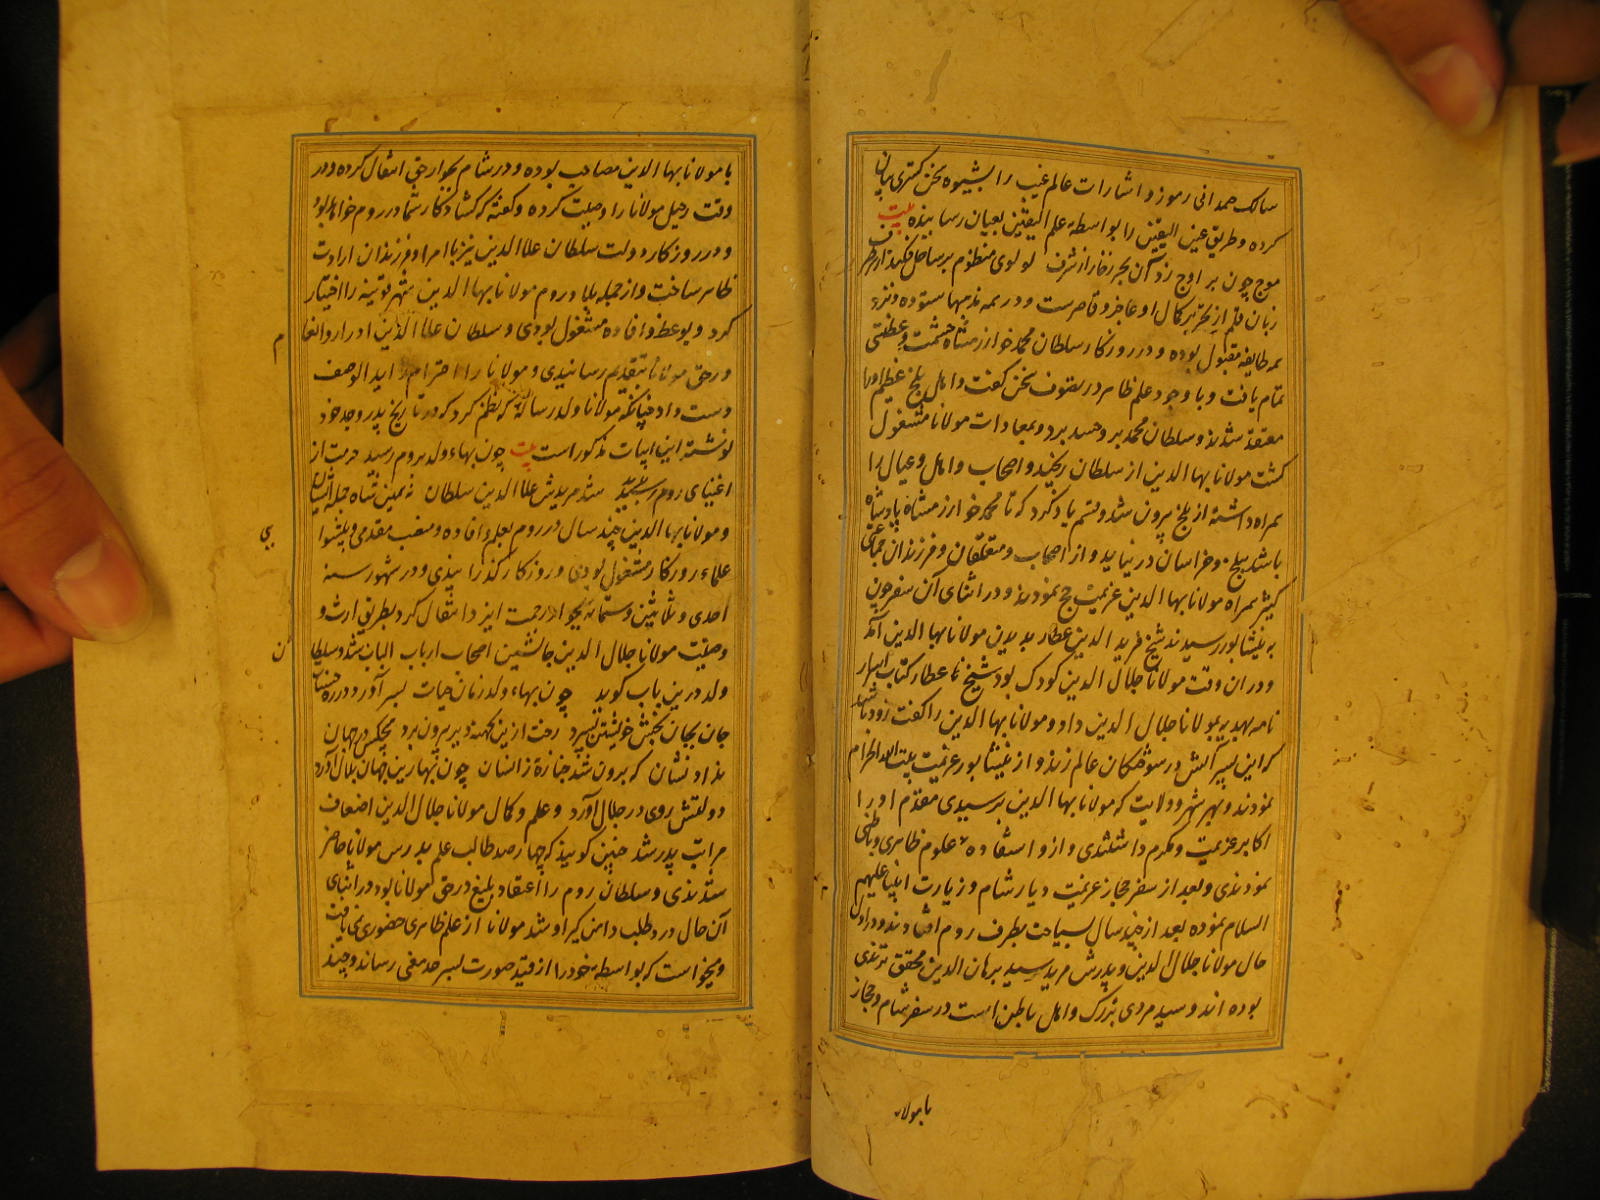 سالک صمدانی رموز و اشارات عالم غیب را بشیوه سخن کستری بیان
کرده و طریق عین الیقین را بواسطه علم الیقین بعیان رسانیده بیت
موج چون بر اوج زد آن بحر زخار از شرف لولوی منظوم بر ساحل فکند از هر طرف
زبان قلم از تحریر کمال او عاجز و قاصرست و در همه مذهبها ستوده و نزد
همه طایفه مقبول بوده و در روزکار سلطان محمد خوارزمشاه حشمت و عظمتی
تمام یافت و با وجود علم ظاهر در تصوف سخن کفت و اهل بلخ عظیم او را
معتقد شدند و سلطان محمد برو حسد برد و بمعادات مولانا مشغول
کشت مولانا بها الدین از سلطان رنجید و اصحاب و اهل و عیال را
همراه داشته از بلخ بیرون شد و قسم یاد کرد که تا محمد خوارزمشاه پادشاه
باشد ببلخ و خراسان در نیاید و از اصحاب و متعلقان و فرزندان جماعتی
کثیر همراه مولانا بها الدین عزیمت حج نمودند و در اثنای آن سفر چون
به نیشابور رسیدند شیخ فرید الدین عطار بدیدن مولانا بها الدین آمد
و در ان وقت مولانا جلال الدین کودک بود شیخ عطار کتاب اسرار
نامه بهدیه بمولانا جلال الدین داد و مولانا بها الدین را کفت زود باشد
که این پسر آتش در سوختکان عالم زند و از نیشابور عزیمت بیت الله الحرام
نمودند و بهر شهر و ولایت که مولانا بها الدین برسیدی مقدم او را
اکابر عزیمت و مکرم داشتندی و از و استفاده علوم ظاهری و باطنی
نمودندی و بعد از سفر حجاز عزیمت دیار شام و زیارت انبیا علیهم
السلام نموده بعد از چند سال سیاحت بطرف روم افتادند و در اول
حال مولانا جلال الدین و پدرش مرید سید برهان الدین محقق ترمذی
بوده اند و سید مردی بزرک و اهل باطن است در سفر شام و حجاز
با مولانا
با مولانا بها الدین مصاحب بوده و در شام بجوار حق انتقال کرده و در
وقت رحیل مولانا را وصیت کرده و کفته که کشاد کار شما در روم خواهد بود
و در روزکار دولت سلطان علا الدین نیز با امرا و فرزندان ارادت
ظاهر ساخت و از جمله بلاد روم مولانا بها الدین شهر قونیه را اختیار
کرد و بوعظ و افاده مشغول بودی و سلطان علا الدین ادرار و انعام
در حق مولانا بتقدیم رسانیدی و مولانا را احترام زاید الوصف
دست داد چنانکه مولانا ولد رساله که نظم کرد که در تاریخ پدر و جد خود
نوشته این ابیات مذکور است بیت چون بهاء ولد بروم رسید حرمت از
اغنیای روم بدید شد مریدش علا الدین سلطان نه همین شاه جمله ایشان
و مولانا بها الدین چند سال در روم بعلم و افاده و منصب مقدمی و پیشوایی
علماء روزکار مشغول بودی و روزکار کذرانیدی و در شهور سنه
احدی و ثلاثین و ستمائه بجوار رحمت ایزد انتقال کرد بطریق ارث و
وصیت مولانا جلال الدین جانشین اصحاب ارباب الباب شد و سلطان
ولد درین باب کوید چون بهاء ولد زمان حیات بسر آورد و در ره حسنات
جان بجان بخش خویشتن بسپرد رخت ازین کهنه دیر بیرون برد هیچکس در جهان
نداد نشان که برون شد جنازۀ زانسان چون بهارین جهان بلال آورد
دولتش روی در جلال آورد و علم و کمال مولانا جلال الدین اضعاف
مراتب پدر شد چنین کویند که چهار صد طالب علم بدرس مولانا حاضر
شدندی و سلطان روم را اعتقاد بلیغ در حق مولانا بود در اثنای
آن حال درد طلب دامن کیر او شد مولانا از علم ظاهری حضوری نمی یافت
و میخواست که بواسطه خود را از قید صورت بسر حد معنی رساند و چند